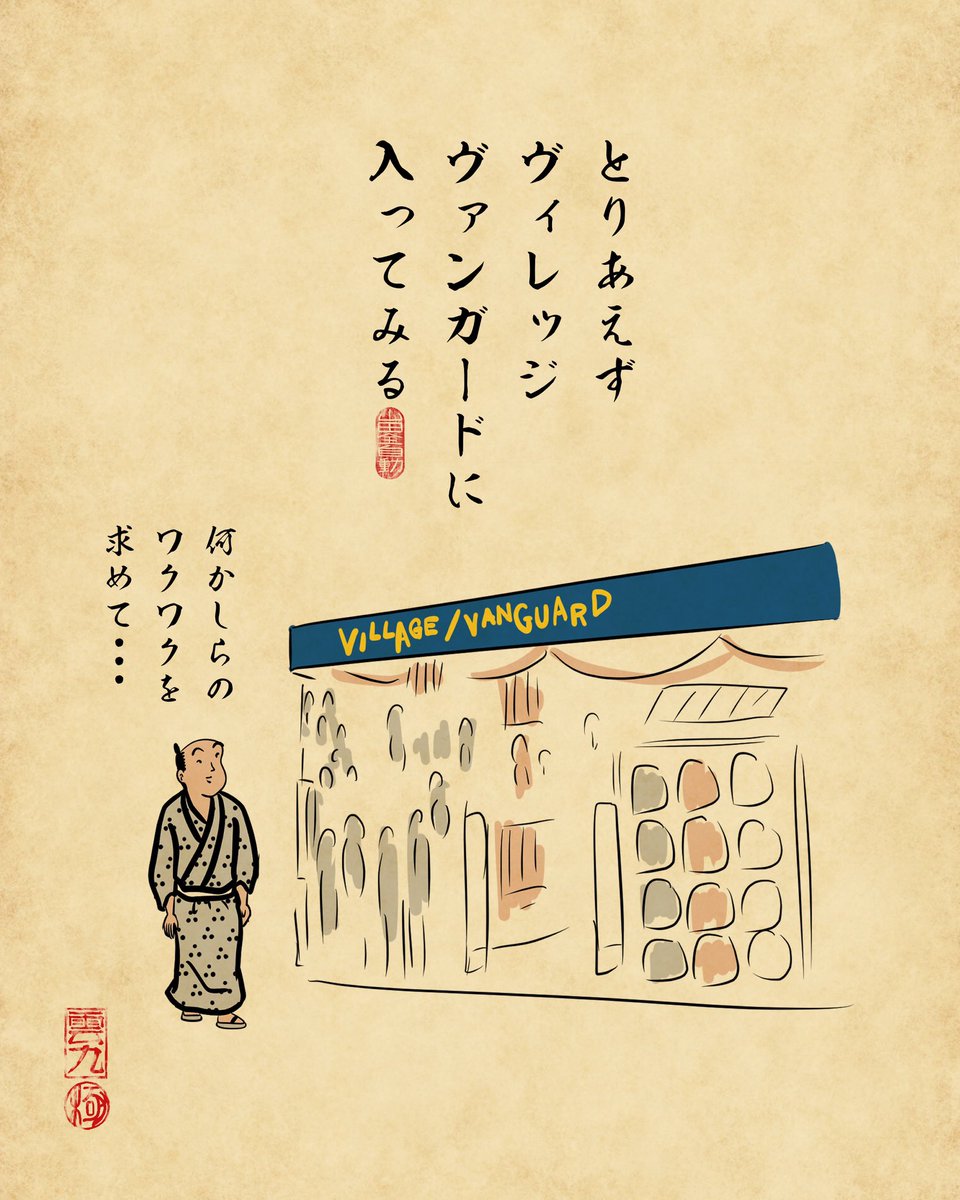 とりあえず
ヴィレッジ
ヴァンガードに
入ってみる
何かしらの
ワクワクを
求めて・・・
VILLAGE/VANGUARD